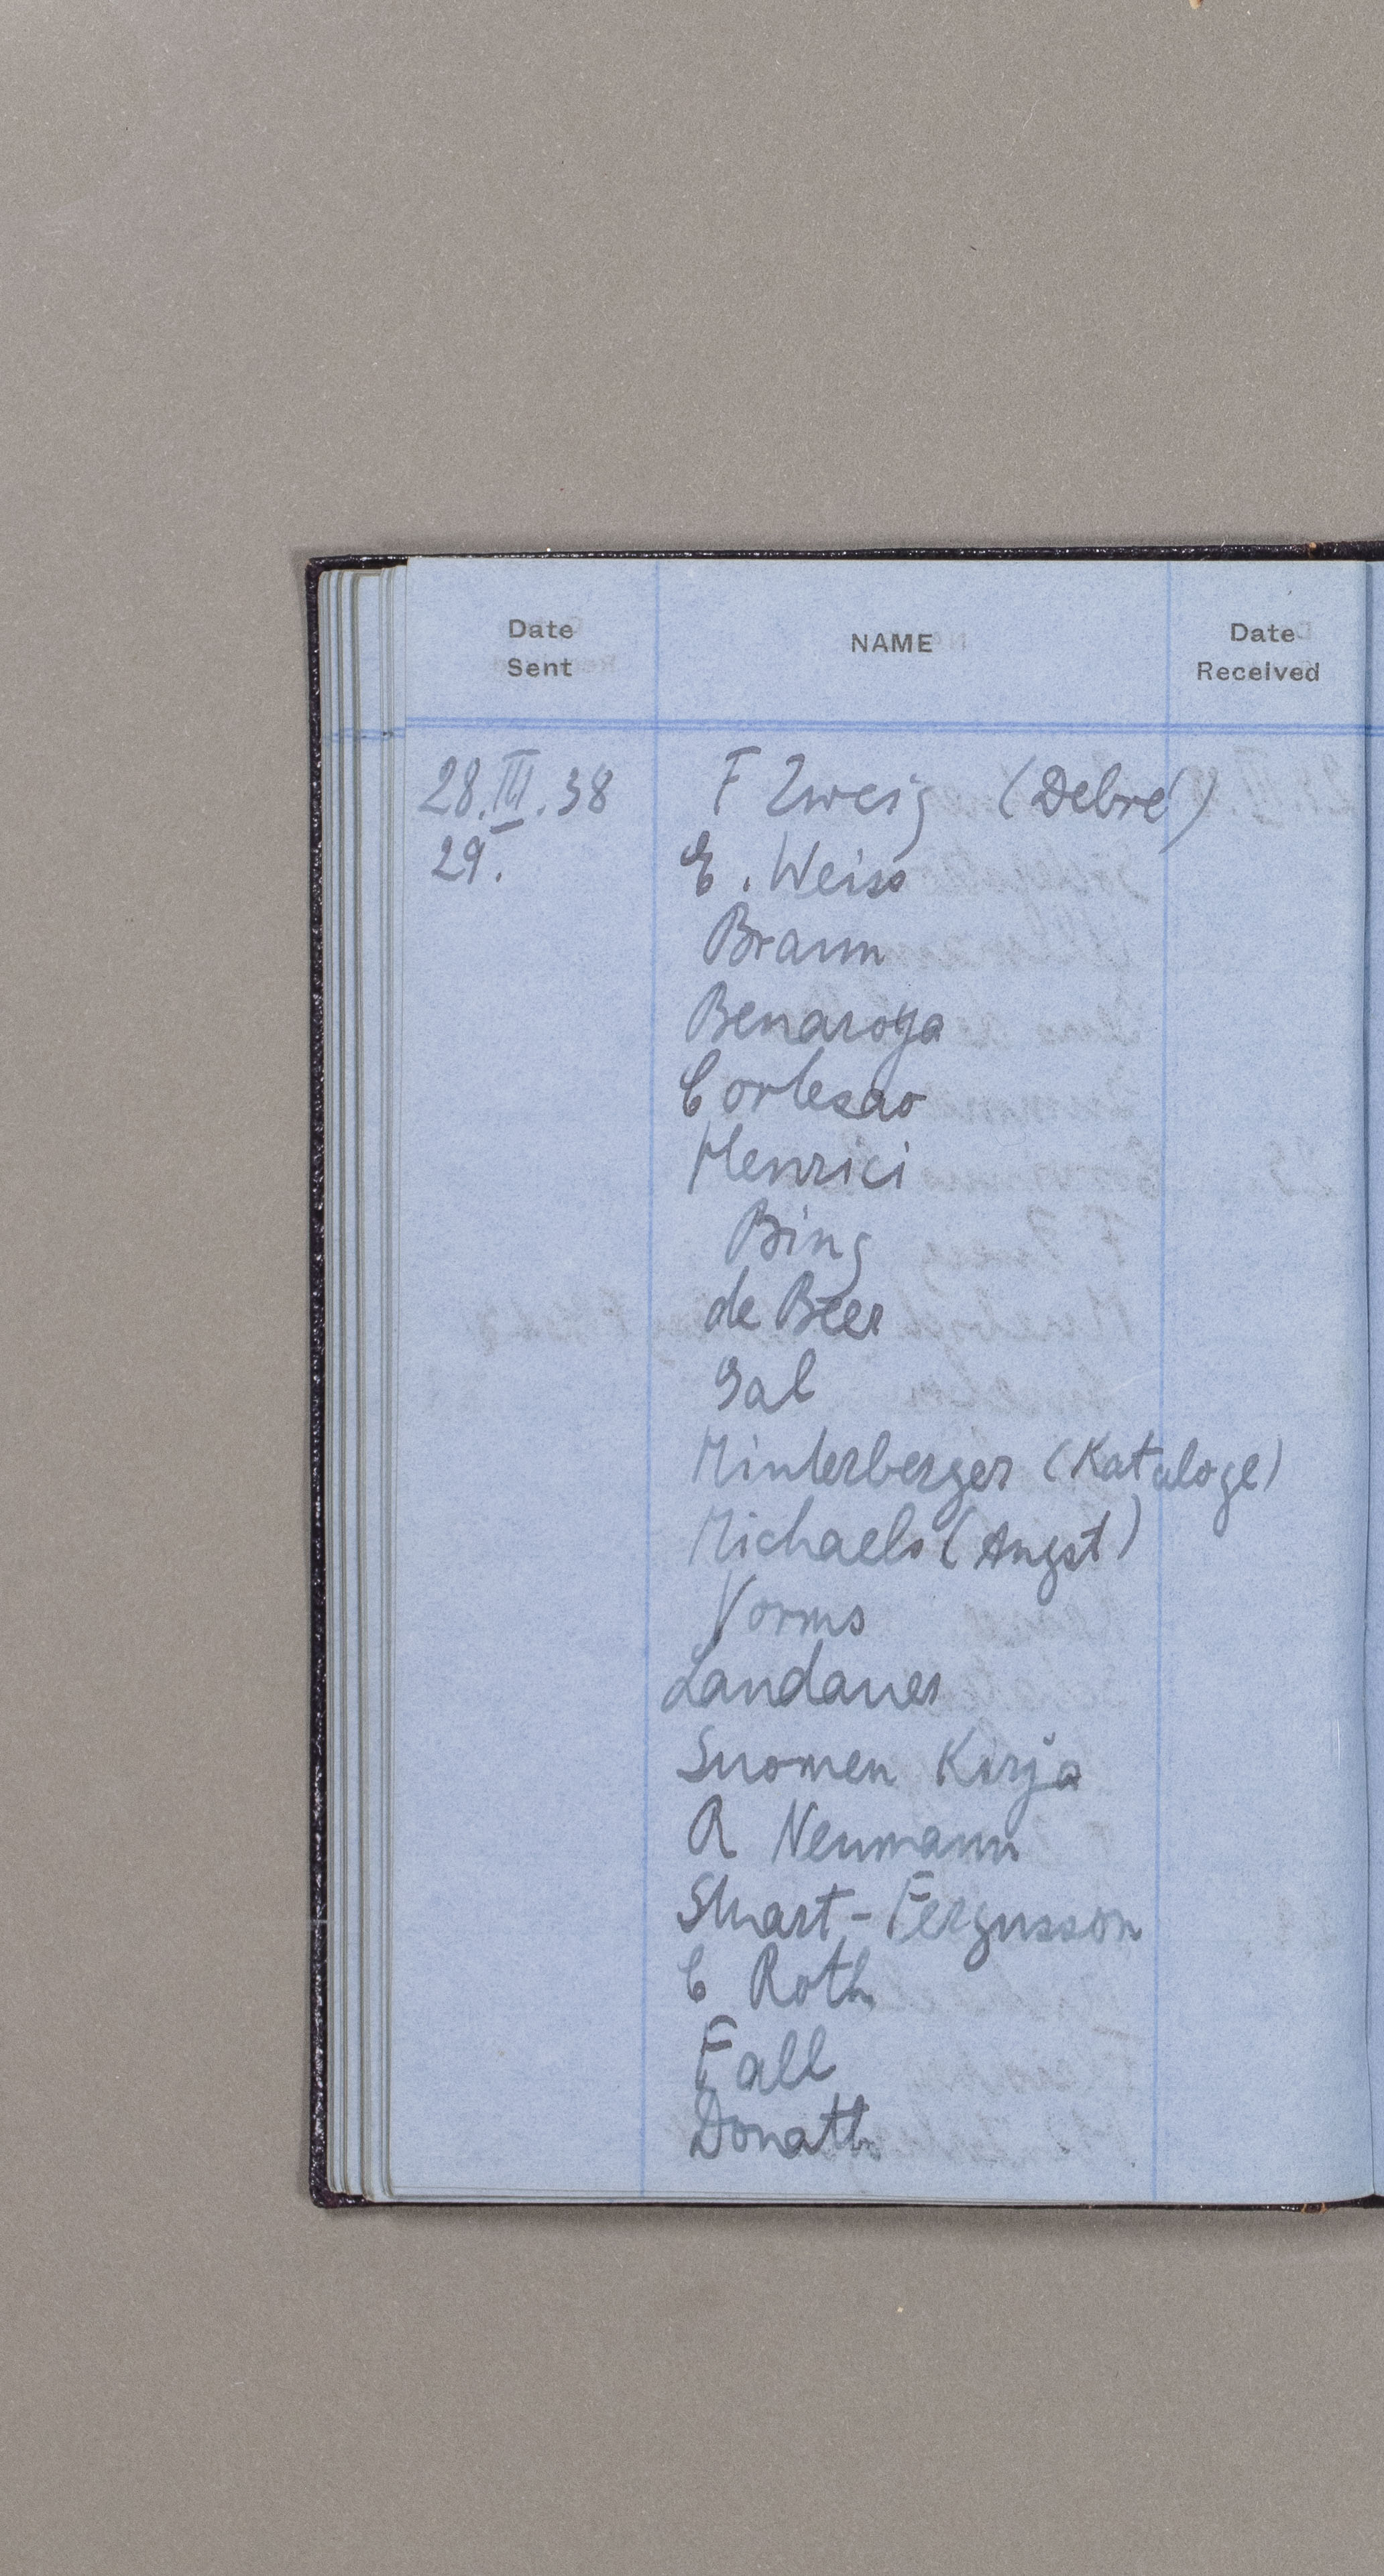 Date Sent NAME Date Received
28.III.38 F Zweig (Debré)
29. E. Weiss
Braun
Benaroya
Cortesao
Henrici
Bing
de Beer
Gal
Hinterberger (Kataloge)
Michaels (Angst)
Vorms
Landauer
Suomen Kirja
R Neumann
Stuart-Fergusson
C Roth
Fall
Donath